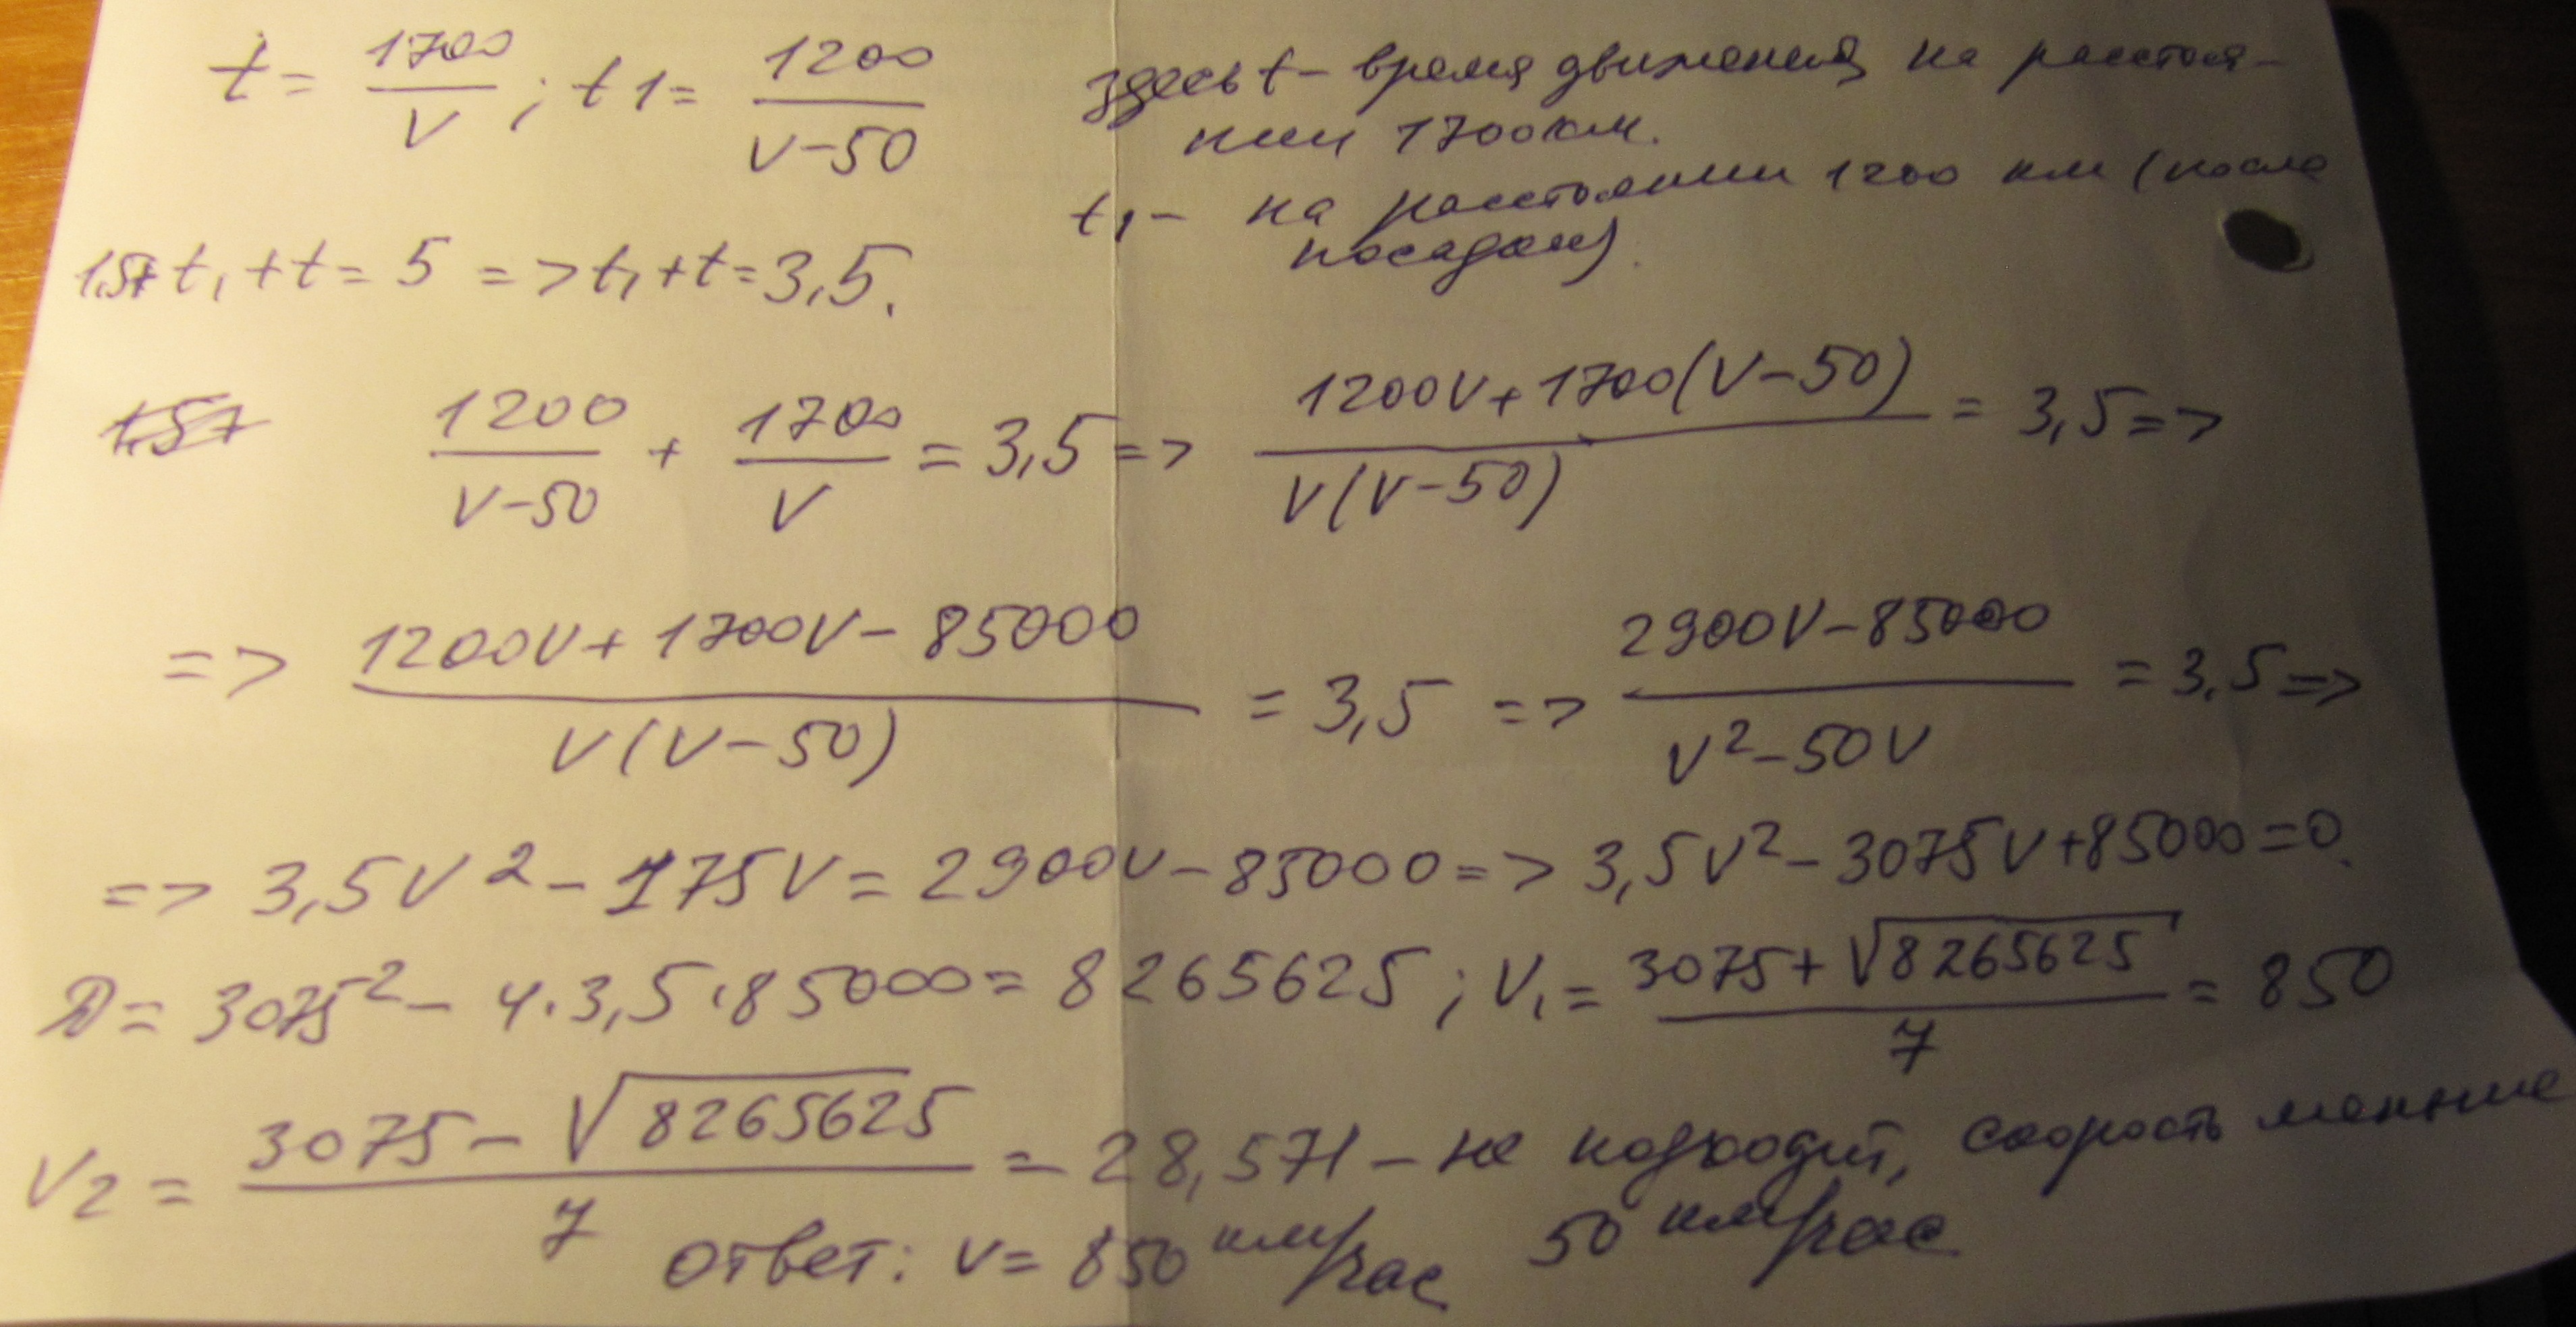 t = 1700/V ; t1 = 1200/(V-50)
здесь t - время движения на расстоя-
нии 1700 км.
t₁ - на расстоянии 1200 км (после
посадки).
1,5+t₁+t = 5 => t₁+t = 3,5.
1200/(V-50) + 1700/V = 3,5 => (1200V+1700(V-50))/(V(V-50)) = 3,5 =>
=> (1200V+1700V-85000)/(V(V-50)) = 3,5 => (2900V-85000)/(V²-50V) = 3,5 =>
=> 3,5V²-175V = 2900V-85000 => 3,5V²-3075V+85000=0.
D = 3075²-4·3,5·85000 = 8265625 ; V₁ = (3075+√8265625)/7 = 850
V₂ = (3075-√8265625)/7 = 28,571 - не подходит, скорость меньше
50 км/час
Ответ: V = 850 км/час